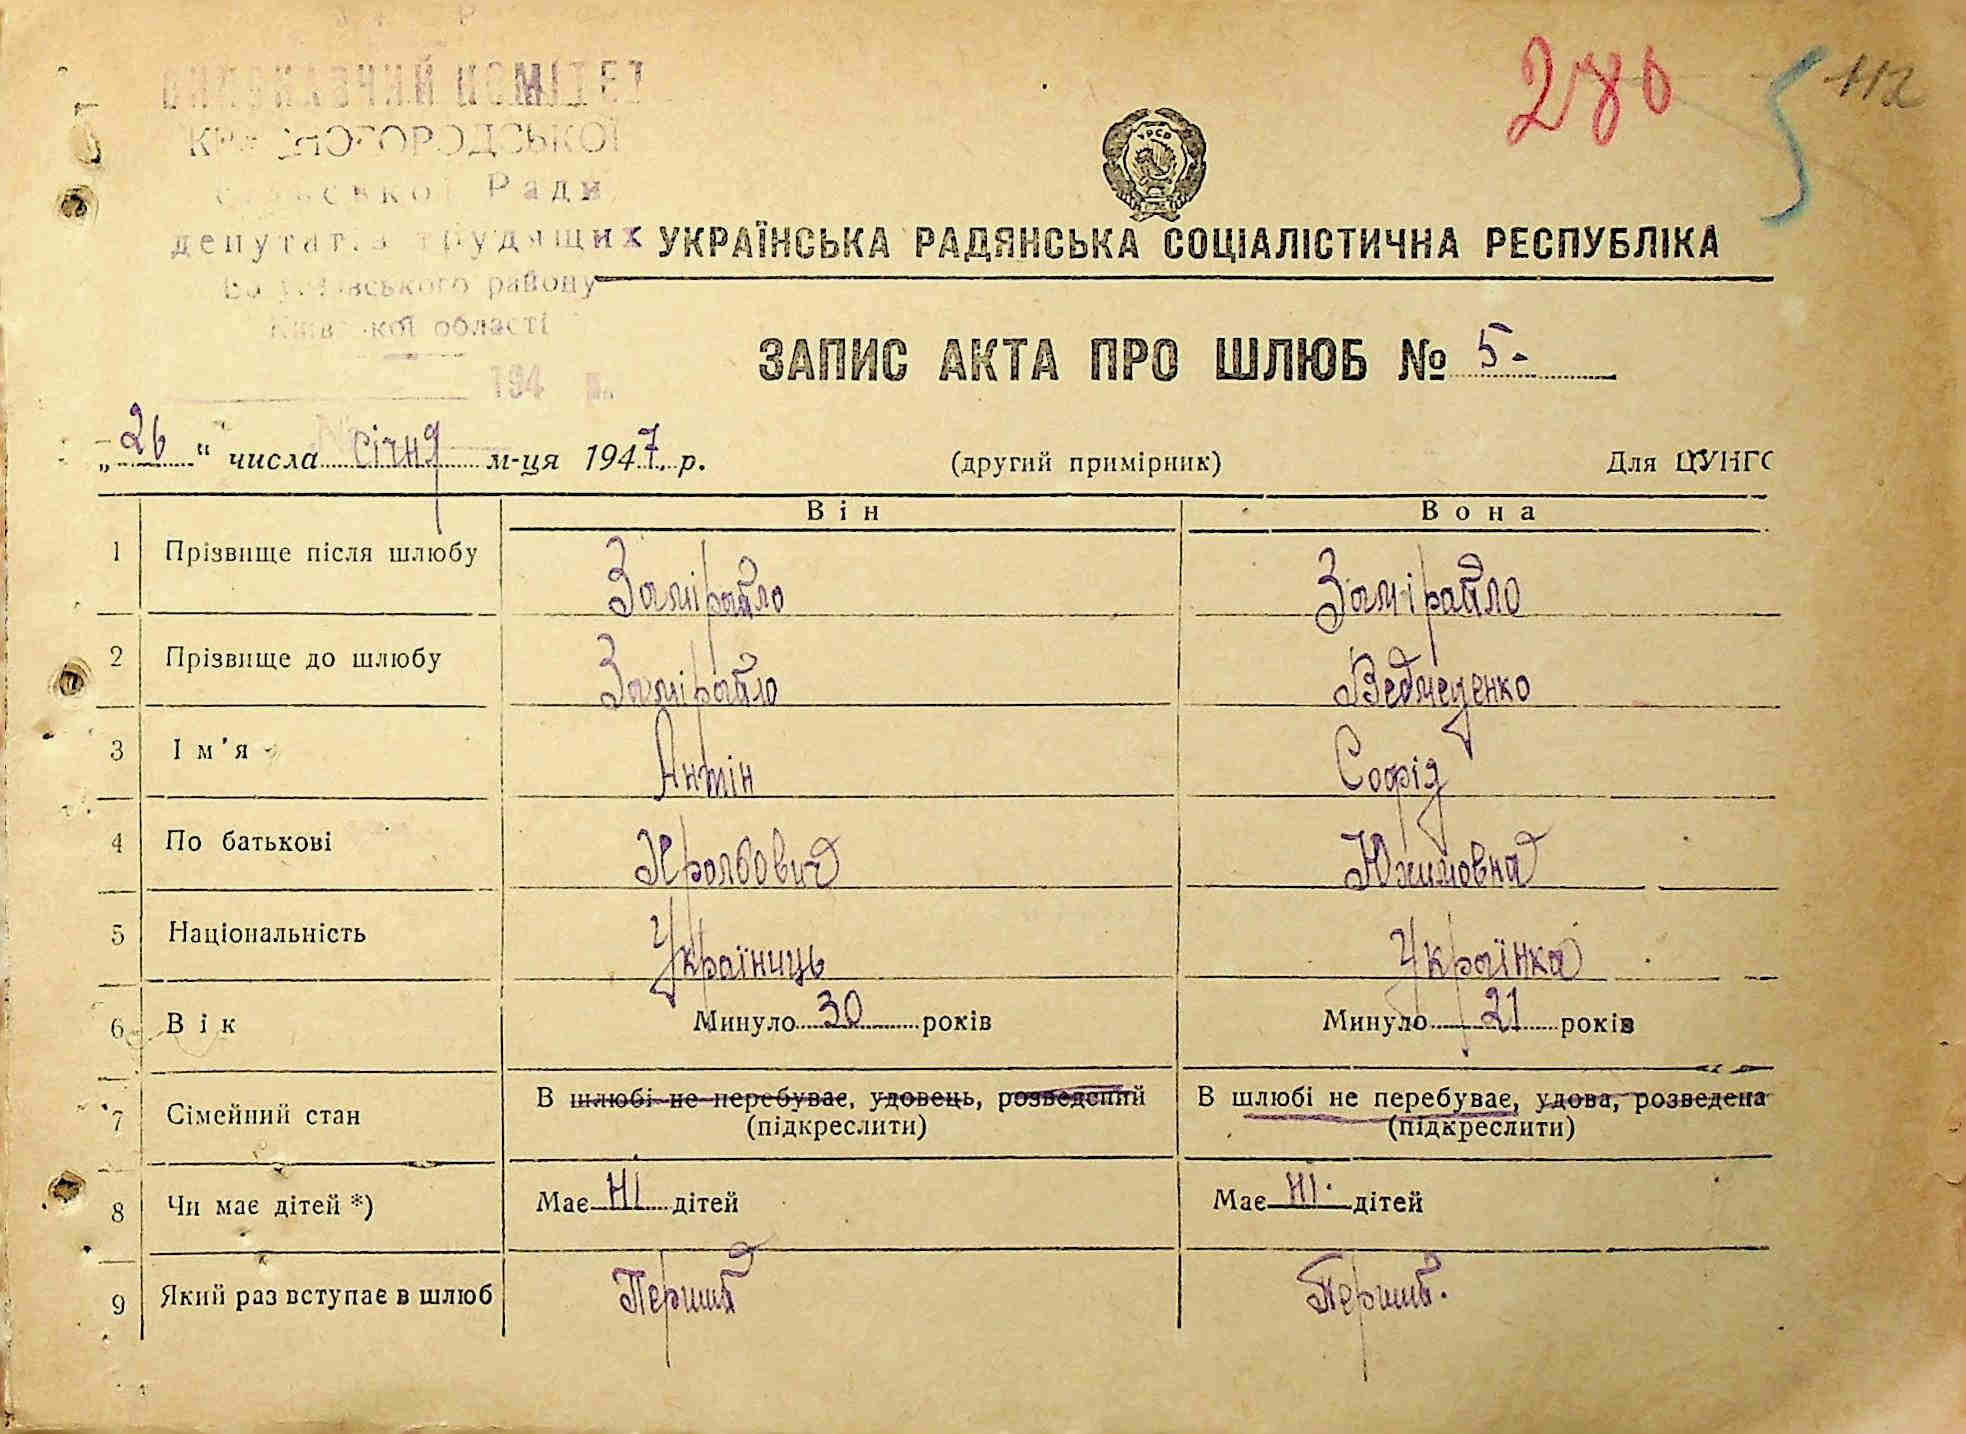 280 112
5
ВИКОНАВЧИЙ КОМІТЕТ
сільської Ради
депутатів трудящих
району
Київської області
194 р.
УРСР
УКРАЇНСЬКА РАДЯНСЬКА СОЦІАЛІСТИЧНА РЕСПУБЛІКА
ЗАПИС АКТА ПРО ШЛЮБ № 5-
„26“ числа січня м-ця 1947 р. (другий примірник) Для ЦУНГО
Він Вона
1 Прізвище після шлюбу Замірайло Замірайло
2 Прізвище до шлюбу Замірайло Ведмеденко
3 Ім'я Антін Софія
4 По батькові
5 Національність Украіниць Українка
6 Вік Минуло 30 років Минуло 21 років
7 Сімейний стан В шлюбі не перебуває, удовець, розведений В шлюбі не перебуває, удова, розведена
(підкреслити) (підкреслити)
8 Чи має дітей *) Має НІ дітей Має НІ. дітей
9 Який раз вступає в шлюб Перший Перший.